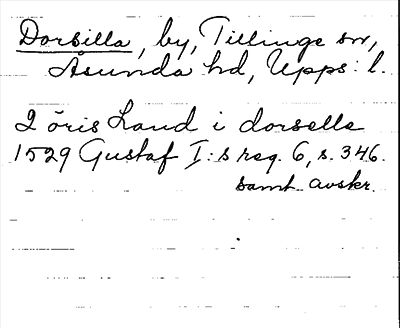 Dorsilla, by, Tillinge sn,
Åsunda hd, Upps. l.
2 öris Land i dorsella
1529 Gustaf I:s reg. 6, s. 346.
samt. avskr.